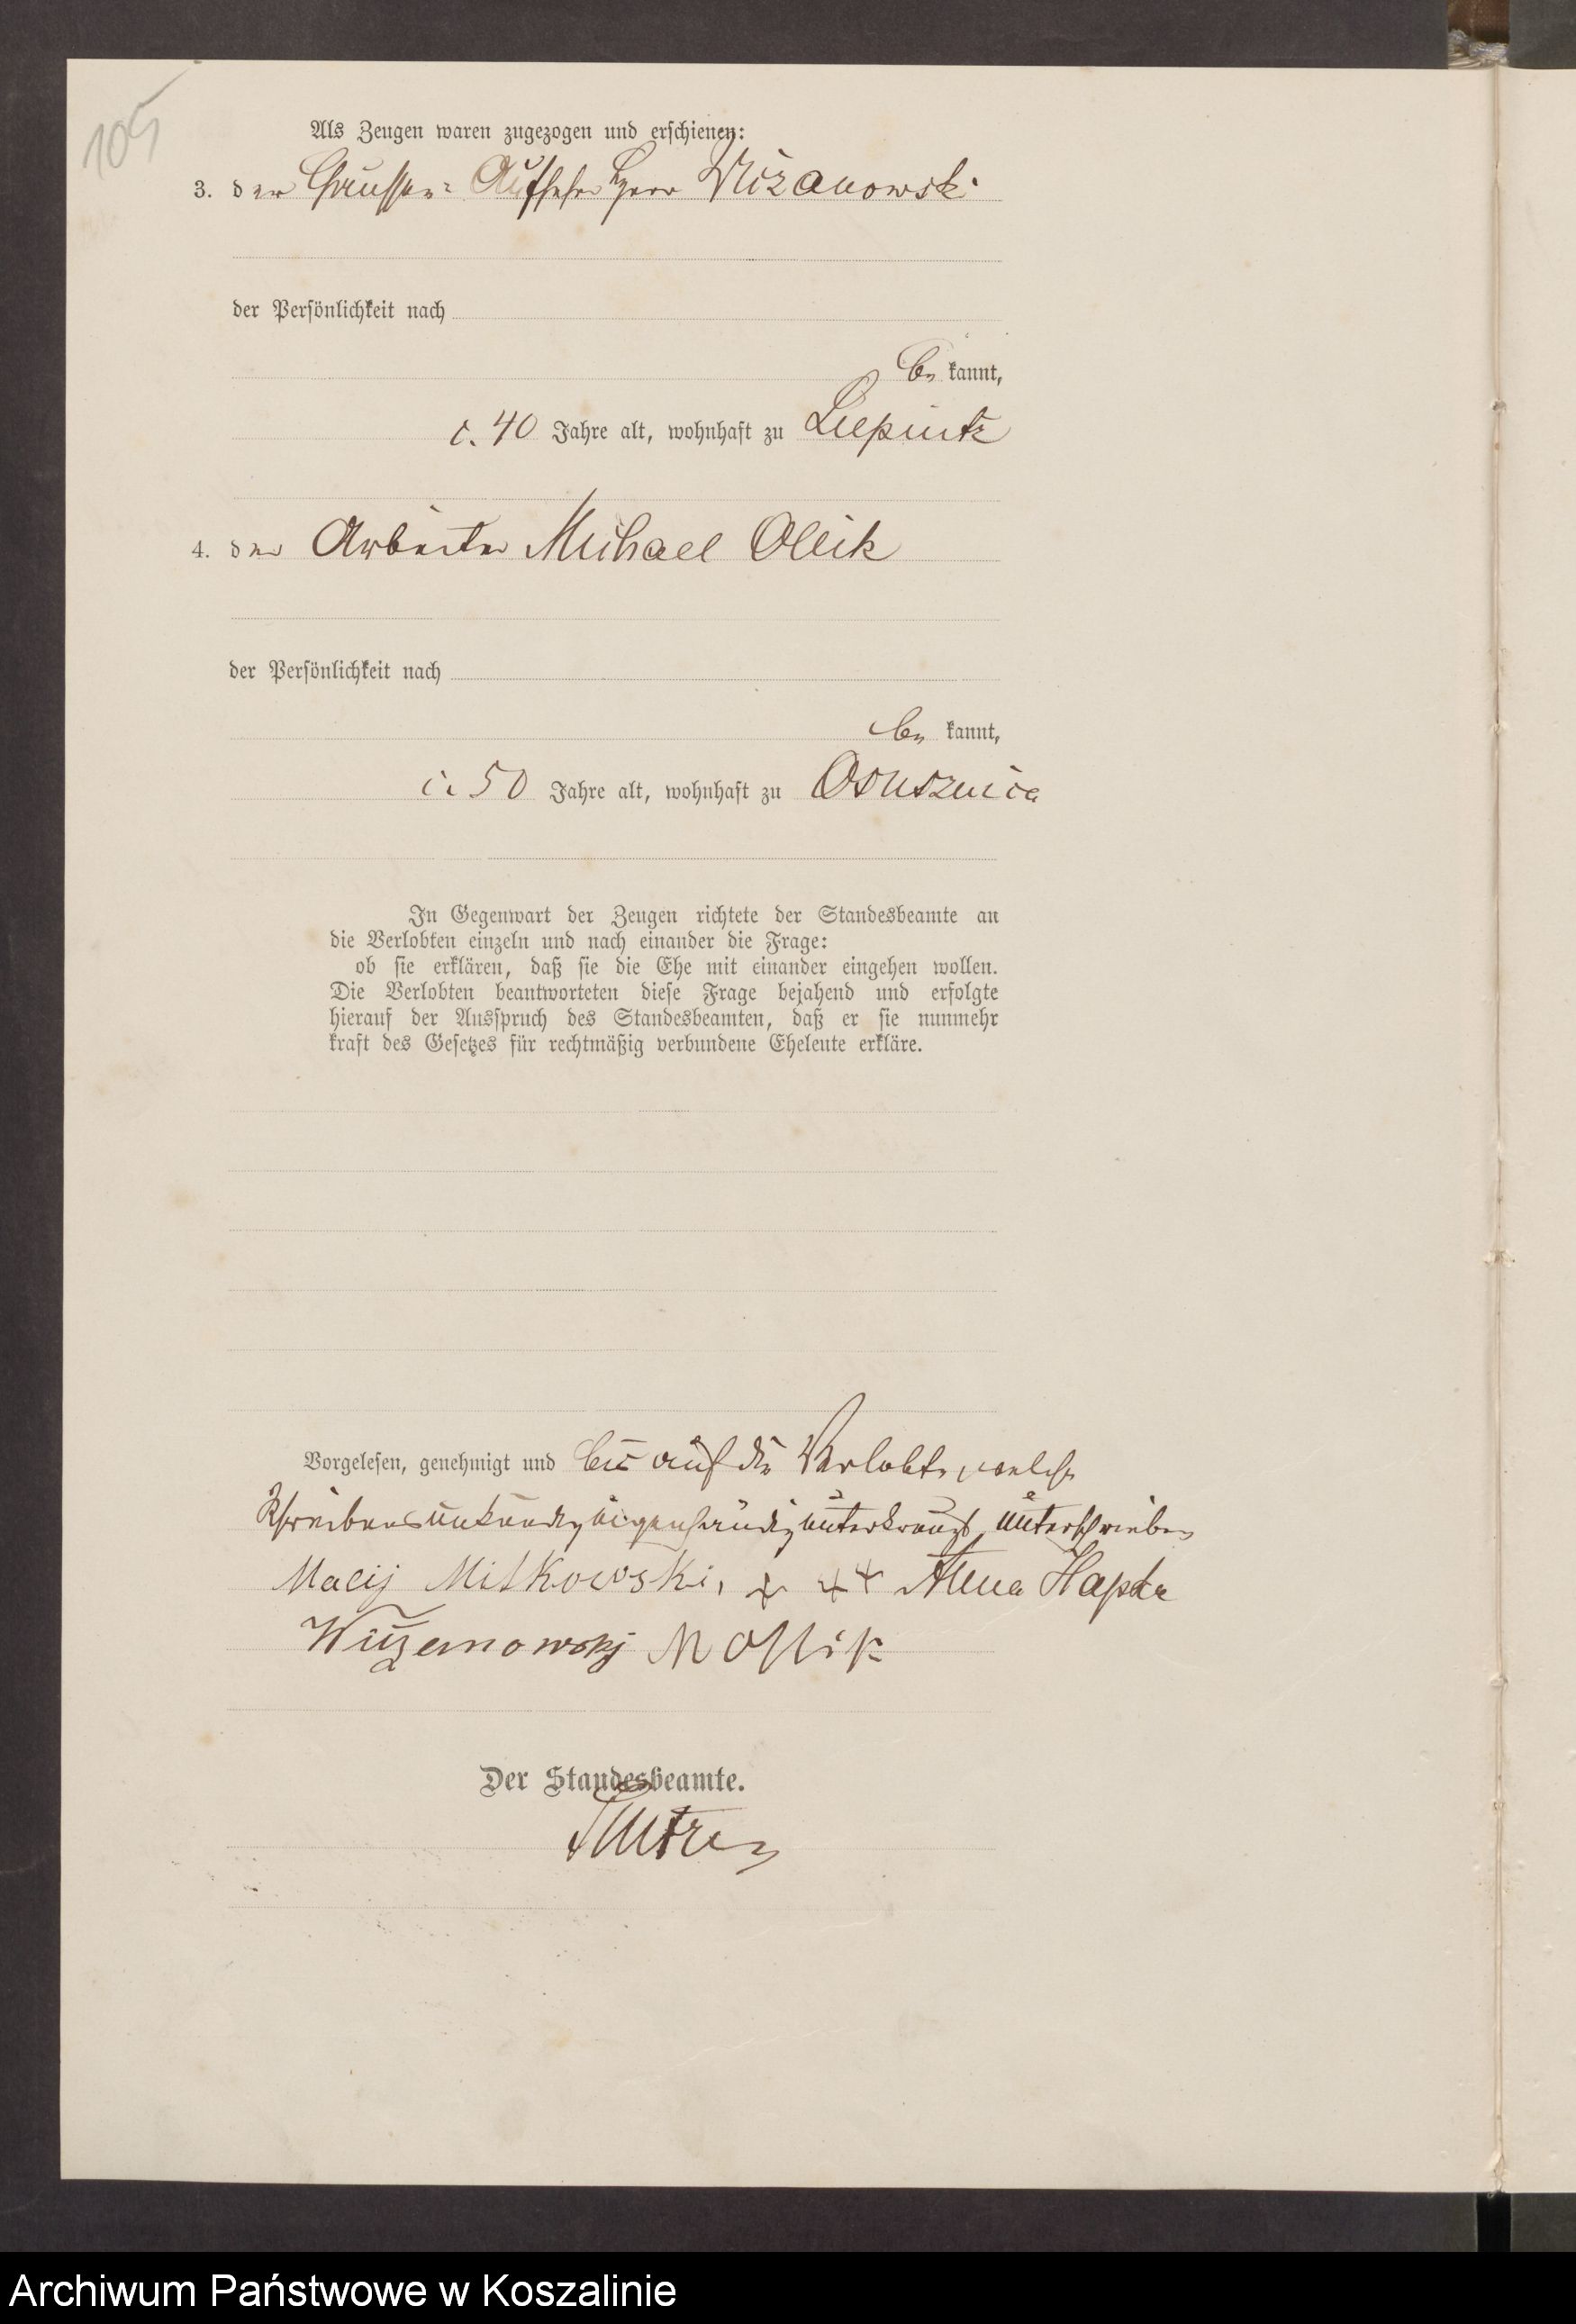 105
Als Zeugen waren zugezogen und erschienen:
3. der Chaussee-Aufseher Herr Wizanowski
der Persönlichkeit nach
be kannt,
c. 40 Jahre alt, wohnhaft zu Liepnitz
4. der Arbeiter Michael Olik
der Persönlichkeit nach
be kannt,
c. 50 Jahre alt, wohnhaft zu Osusznica
In Gegenwart der Zeugen richtete der Standesbeamte an
die Verlobten einzeln und nach einander die Frage:
ob sie erklären, daß sie die Ehe mit einander eingehen wollen.
Die Verlobten beantworteten diese Frage bejahend und erfolgte
hierauf der Ausspruch des Standesbeamten, daß er sie nunmehr
kraft des Gesetzes für rechtmäßig verbundene Eheleute erkläre.
Vorgelesen, genehmigt und bis auf die Verlobte, welche
Schreibensunkundig eigenhändig unterkreuzt, unterschrieben
Macij Mitkowski, + ++ Anna Hapka
M Ollik
Der Standesbeamte.
Archiwum Państwowe w Koszalinie